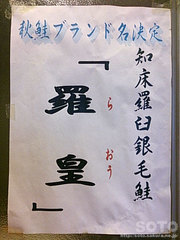 秋鮭ブランド名決定
知床羅臼銀毛鮭
「羅皇」
らおう
SOTO